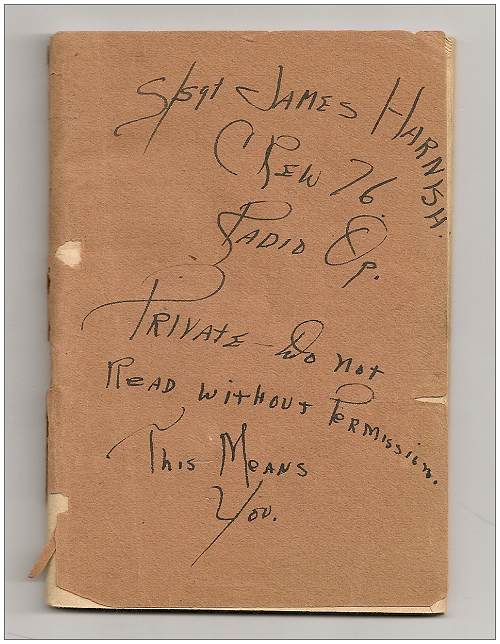 S/Sgt James Harnish.
Crew 76.
Radio Op.
Private - Do not
Read without Permission.
This Means
You.